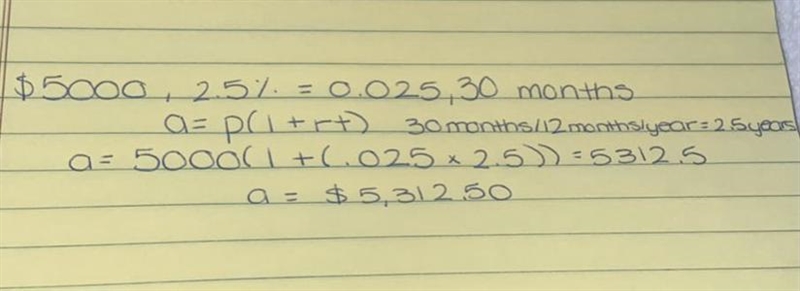 $5000, 2.5% = 0.025, 30 months
a= p(1+rt) 30months/12months/year=2.5years
a= 5000(1+(.025 x 2.5))=5312.5
a= $5,312.50